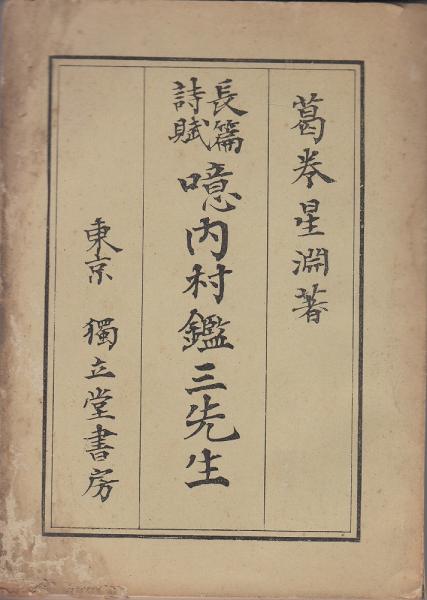 葛巻星淵著
長篇詩賦 噫内村鑑三先生
東京 獨立堂書房